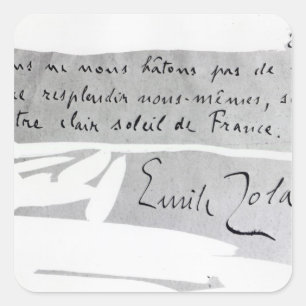 ns ne nous hâtons pas de
re resplendir nous-mêmes, s
tre clair soleil de France.
Emile Zola